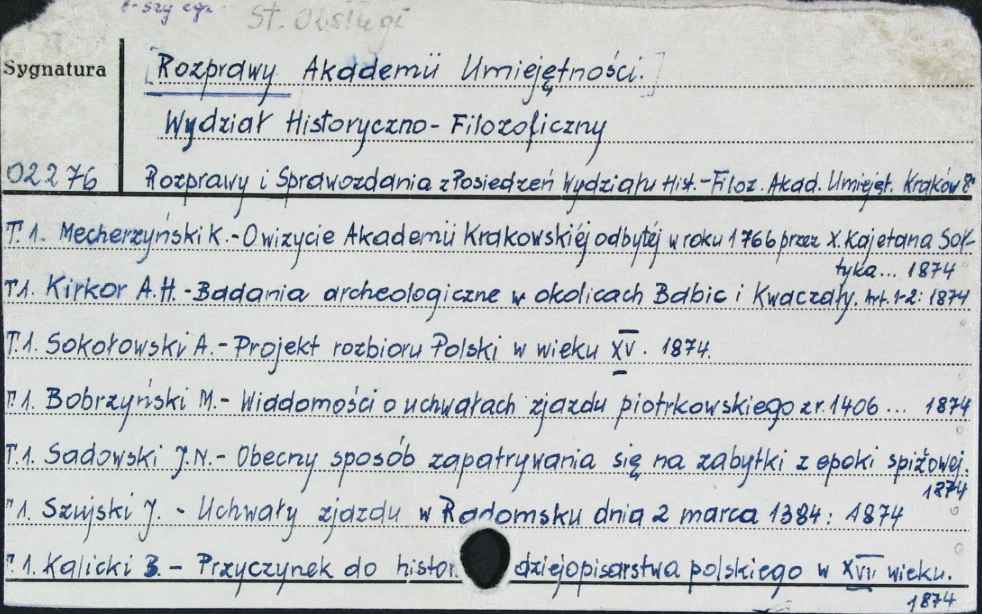 I-szy egz.
St. Obsługi
Sygnatura
[Rozprawy Akademii Umiejętności.]
Wydział Historyczno-Filozoficzny
02276
Rozprawy i Sprawozdania z Posiedzeń Wydziału Hist.-Filoz. Akad. Umiejęt. Kraków 8°
T.1. Mecherzyński K.-O wizycie Akademii Krakowskiéj odbytéj w roku 1766 przez X. Kajetana Soł-
tyka... 1874
T.1. Kirkor A.H.-Badania archeologiczne w okolicach Babic i Kwaczały. Art. 1-2: 1874
T.1. Sokołowski A.-Projekt rozbioru Polski w wieku XV. 1874.
T.1. Bobrzyński M.- Wiadomości o uchwałach zjazdu piotrkowskiego z r. 1406 ... 1874
T.1. Sadowski J.N.- Obecny sposób zapatrywania się na zabytki z epoki spiżowej.
1874
T.1. Szujski J. - Uchwały zjazdu w Radomsku dnia 2 marca 1384: 1874
T.1. Kalicki B. - Przyczynek do histor dziejopisarstwa polskiego w XVII wieku.
1874